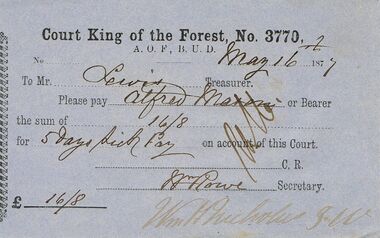 Court King of the Forest, No. 3770,
A. O. F., B. U. D.
No May 16th 1877
To Mr. Lewis Treasurer.
Please pay Alfred or Bearer
the sum of 16/8
for 5 Days Sick Pay on account of this Court.
C. R.
Wm Rowe Secretary.
£ 16/8
Wm Nicholas